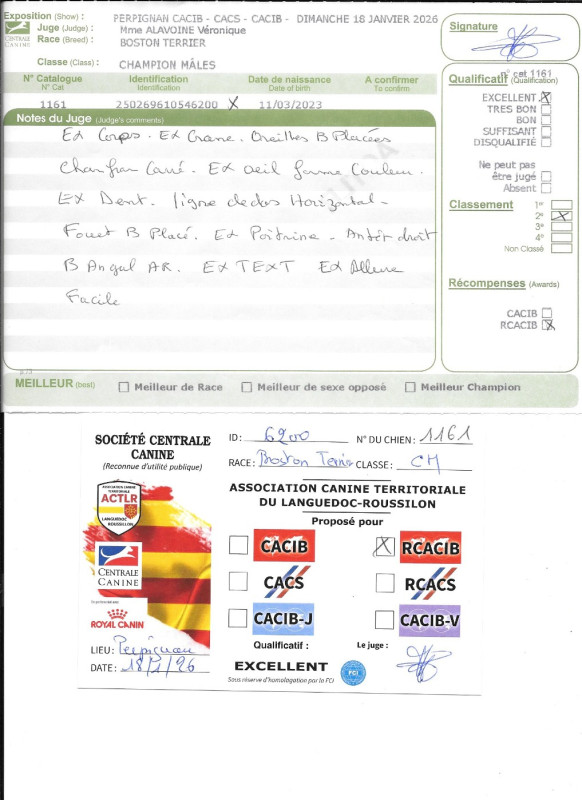 Exposition (Show) : PERPIGNAN CACIB - CACS - CACIB - DIMANCHE 18 JANVIER 2026
Juge (Judge) : Mme ALAVOINE Véronique
Race (Breed) : BOSTON TERRIER
CENTRALE CANINE
Classe (Class) : CHAMPION MÂLES
N° Catalogue Identification Date de naissance A confirmer
N° Cat Identification Date of birth To confirm
1161 250269610546200 X 11/03/2023
Notes du Juge (Judge's comments)
Ex Corps. Ex Crane. Oreilles B Placées
Chanfran Carré. Ex oeil forme Couleur.
Ex Dent. ligne de dos Horizontal.
Fouet B Placé. Ex Poitrine. Antér droit
B Angul AR. Ex TEXT Ex Allure
Facile
Signature
n° cat 1161
Qualificatif (Qualification)
EXCELLENT X
TRES BON
BON
SUFFISANT
DISQUALIFIÉ
Ne peut pas
être jugé
Absent
Classement
1er
2e X
3e
4e
Non Classé
Récompenses (Awards)
CACIB
RCACIB X
MEILLEUR (best) Meilleur de Race Meilleur de sexe opposé Meilleur Champion
SOCIÉTÉ CENTRALE
CANINE
(Reconnue d'utilité publique)
ASSOCIATION CANINE
TERRITORIALE
ACTLR
LANGUEDOC
ROUSSILLON
CENTRALE
CANINE
ROYAL CANIN
LIEU : Perpignan
DATE : 18/1/26
ID : 6200 N° DU CHIEN : 1161
RACE : Boston Terrier CLASSE : CH
ASSOCIATION CANINE TERRITORIALE
DU LANGUEDOC-ROUSSILLON
Proposé pour
CACIB X RCACIB
CACS RCACS
CACIB-J CACIB-V
Qualificatif : Le juge :
EXCELLENT FCI
Sous réserve d'homologation par la FCI